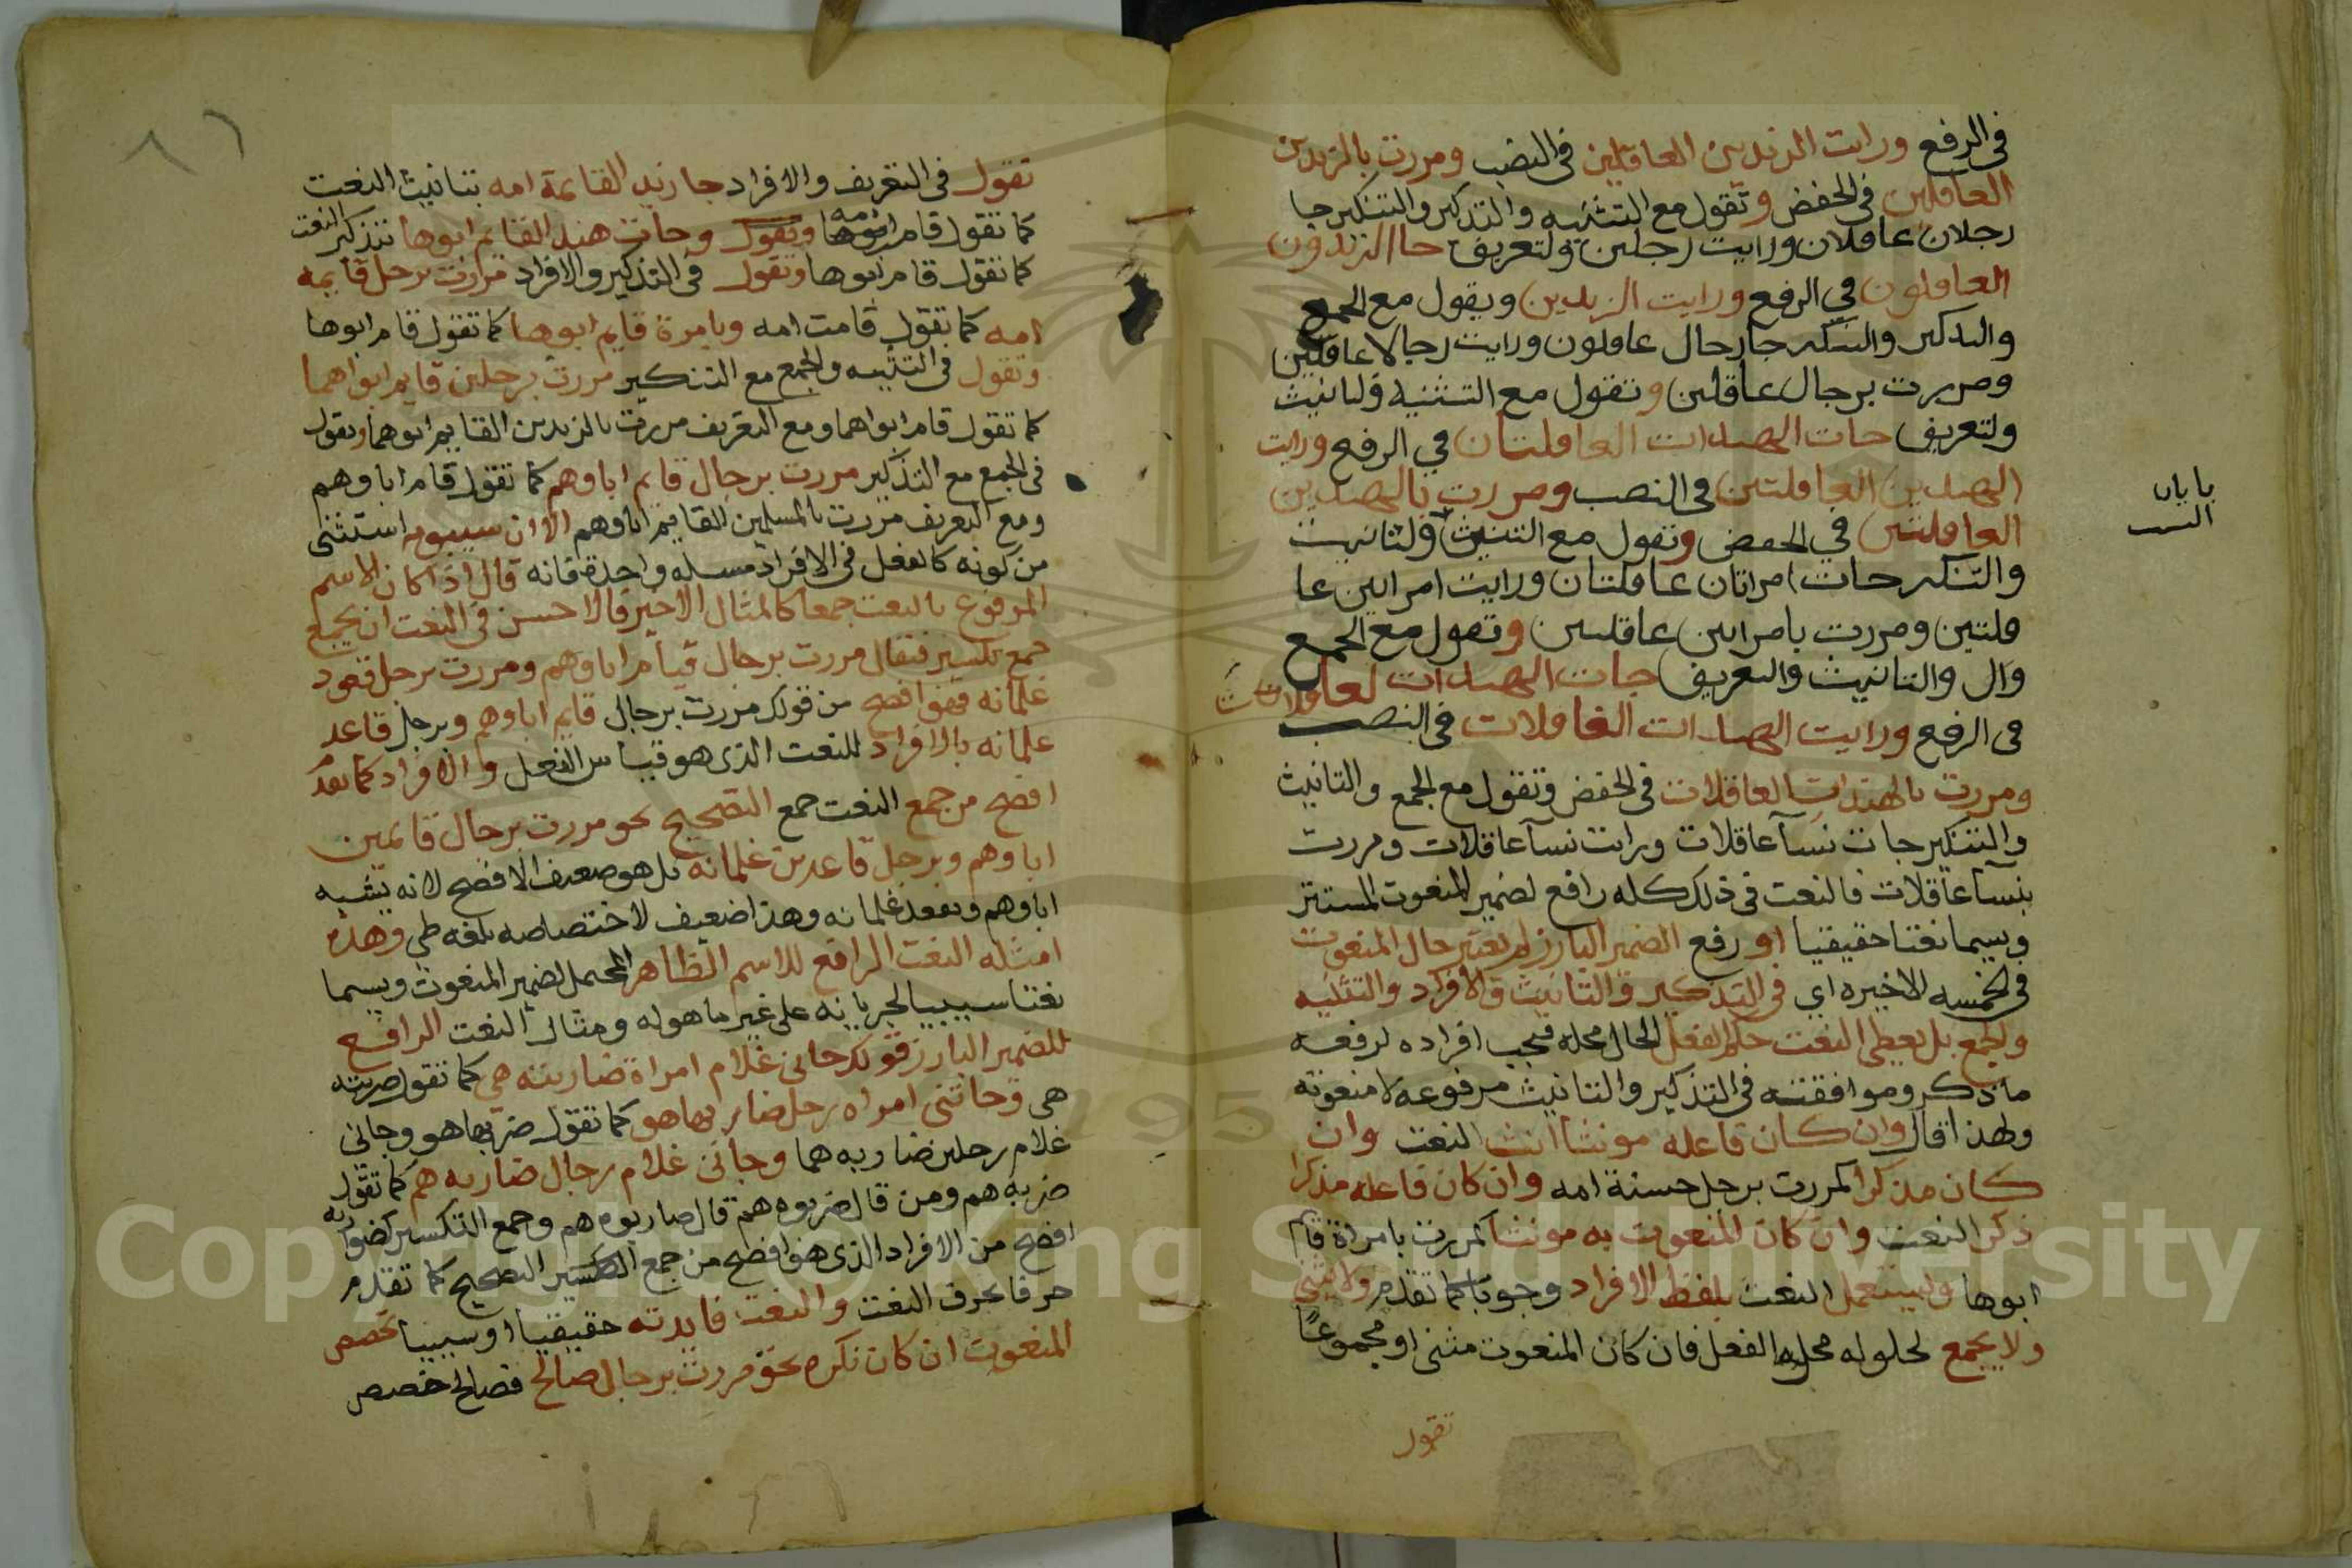 في الرفع ورايت الزيدين العاقلين في النصب ومررت بالزيدين
العاقلين في الخفض وتقول مع التثنيه والتذكير والتنكير جا
رجلان عاقلان ورايت رجلين ولتعريف جا الزيدون
العاقلون في الرفع ورايت الزيدين ويقول مع الجمع
والتذكير والتنكير جا رجال عاقلون ورايت رجالا عاقلين
ومررت برجال عاقلين وتقول مع التثنيه ولتانيث
ولتعريف جات الهندات العاقلتان في الرفع ورايت
الهندين العاقلتين في النصب ومررت بالهندين
العاقلتين في الخفض وتقول مع التثنيث ولتانيث
والتنكير جات امراتان عاقلتان ورايت امراتين عا
قلتين ومررت بامراتين عاقلتين وتقول مع الجمع
وال والتانيث والتعريف جات الهندات لعاقلات
في الرفع ورايت الهندات العاقلات في النصب
ومررت بالهندات العاقلات في الخفض وتقول مع الجمع والتانيث
والتنكير جات نسآ عاقلات ورايت نسآ عاقلات ومررت
بنسآ عاقلات فالنعت في ذلك كله رافع لضمير المنعوت المستتر
ويسما نعتا حقيقيا او رفع الضمير البارز لم يعتبر حال المنعوت
في الخمسه الاخيره اي في التذكير والتانيث والافراد والتثنيه
ولجمع بل يعطى النعت حكم الفعل الحال محله فيجب افراده لرفعه
ما ذكر وموافقته في التذكير والتانيث مرفوعه لا منعوته
ولهذا قال وان كان فاعله مونثا انث النعت وان
كان مذكرا كمررت برجل حسنة امه وان كان فاعله مذكرا
ذكر النعت وان كان المنعوت به مونثا كمررت بامراة قايم
ابوها ويستعمل النعت بلفظ الافراد وجوبا كما تقدم ولا يثني
ولا يجمع لحلوله محله الفعل فان كان المنعوت مثنى او مجموعًا
تقول
تقول في التعريف والافراد جا زيد القايمة امه بتانيث النعت
كما تقول قام امه ابوها وتقول وجات هند القايم ابوها بتذكير النعت
كما تقول قام ابوها وتقول في التذكير والافراد مررت برجل قايمه
امه كما تقول قامت امه وبامرة قايم ابوها كما تقول قام ابوها
وتقول في التثنيه والجمع مع التنكير مررت برجلين قايم ابواهما
كما تقول قام ابواهما ومع التعريف مررت بالزيدين القايم ابوهما وتقول
في الجمع مع التذكير مررت برجال قايم اباوهم كما تقول قام اباوهم
ومع التعريف مررت بالمسلمين القايم اباوهم الا ان سيبويه استثنى
من كونه كالفعل في الافراد مسله واحدة فانه قال اذا كان الاسم
المرفوع بالنعت جمعا كالمثال الاخير فالاحسن في النعت ان يجمع
جمع تكسير فتقال مررت برجال قيام اباوهم ومررت برجل قعود
غلمانه فهو افصح من قولك مررت برجال قايم اباوهم وبرجل قاعد
علمانه بالافراد للنعت الذي هو قياس الفعل والافراد كما تقدم
افصح من جمع النعت جمع التصحيح نحو مررت برجال قايمين
اباوهم وبرجل قاعدين غلمانه بل هو ضعيف الافصح لانه يشبه
اباوهم ويقعد غلمانه وهذا ضعيف لاختصاصه بلغه طي وهذه
امثله النعت الرافع للاسم الظاهر المحتمل لضمير المنعوت ويسما
نعتا سببيا لجريانه على غير ما هو له ومثال النعت الرافع
للضمير البارز قولك جاني غلام امراة ضاربته هي كما تقول ضربته
هي وجاتني امراه رجل ضاربها هو كما تقول ضربها هو وجاني
غلام رجلين ضاربه هما وجاني غلام رجال ضاربه هم كما تقول
ضربه هم ومن قال ضربوه هم قال ضاربوه هم وجمع التكسير كضوا ربه
افصح من الافراد الذي هو افصح من جمع التكسير التصحيح كما تقدم
حرفا بحرف النعت والنعت فايدته حقيقيا او سببيا تخصص
المنعوت ان كان نكره نحو مررت برجال صالح فصالح خصص
Copyright © King Saud University